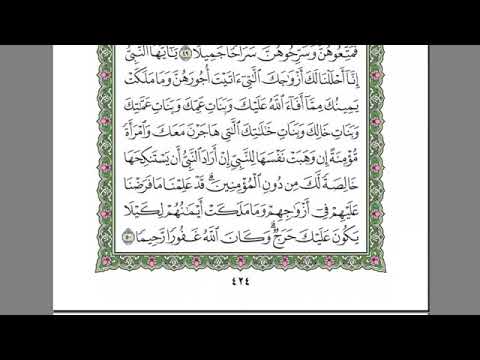 فَمَتِّعُوهُنَّ وَسَرِّحُوهُنَّ سَرَاحًا جَمِيلًا ٤٩ يَٰٓأَيُّهَا ٱلنَّبِيُّ
إِنَّآ أَحْلَلْنَا لَكَ أَزْوَٰجَكَ ٱلَّٰتِيٓ ءَاتَيْتَ أُجُورَهُنَّ وَمَا مَلَكَتْ
يَمِينُكَ مِمَّآ أَفَآءَ ٱللَّهُ عَلَيْكَ وَبَنَاتِ عَمِّكَ وَبَنَاتِ عَمَّٰتِكَ
وَبَنَاتِ خَالِكَ وَبَنَاتِ خَٰلَٰتِكَ ٱلَّٰتِي هَاجَرْنَ مَعَكَ وَٱمْرَأَةً
مُّؤْمِنَةً إِن وَهَبَتْ نَفْسَهَا لِلنَّبِيِّ إِنْ أَرَادَ ٱلنَّبِيُّ أَن يَسْتَنكِحَهَا
خَالِصَةً لَّكَ مِن دُونِ ٱلْمُؤْمِنِينَ ۗ قَدْ عَلِمْنَا مَا فَرَضْنَا
عَلَيْهِمْ فِيٓ أَزْوَٰجِهِمْ وَمَا مَلَكَتْ أَيْمَٰنُهُمْ لِكَيْلَا
يَكُونَ عَلَيْكَ حَرَجٌ ۗ وَكَانَ ٱللَّهُ غَفُورًا رَّحِيمًا ٥٠
٤٢٤